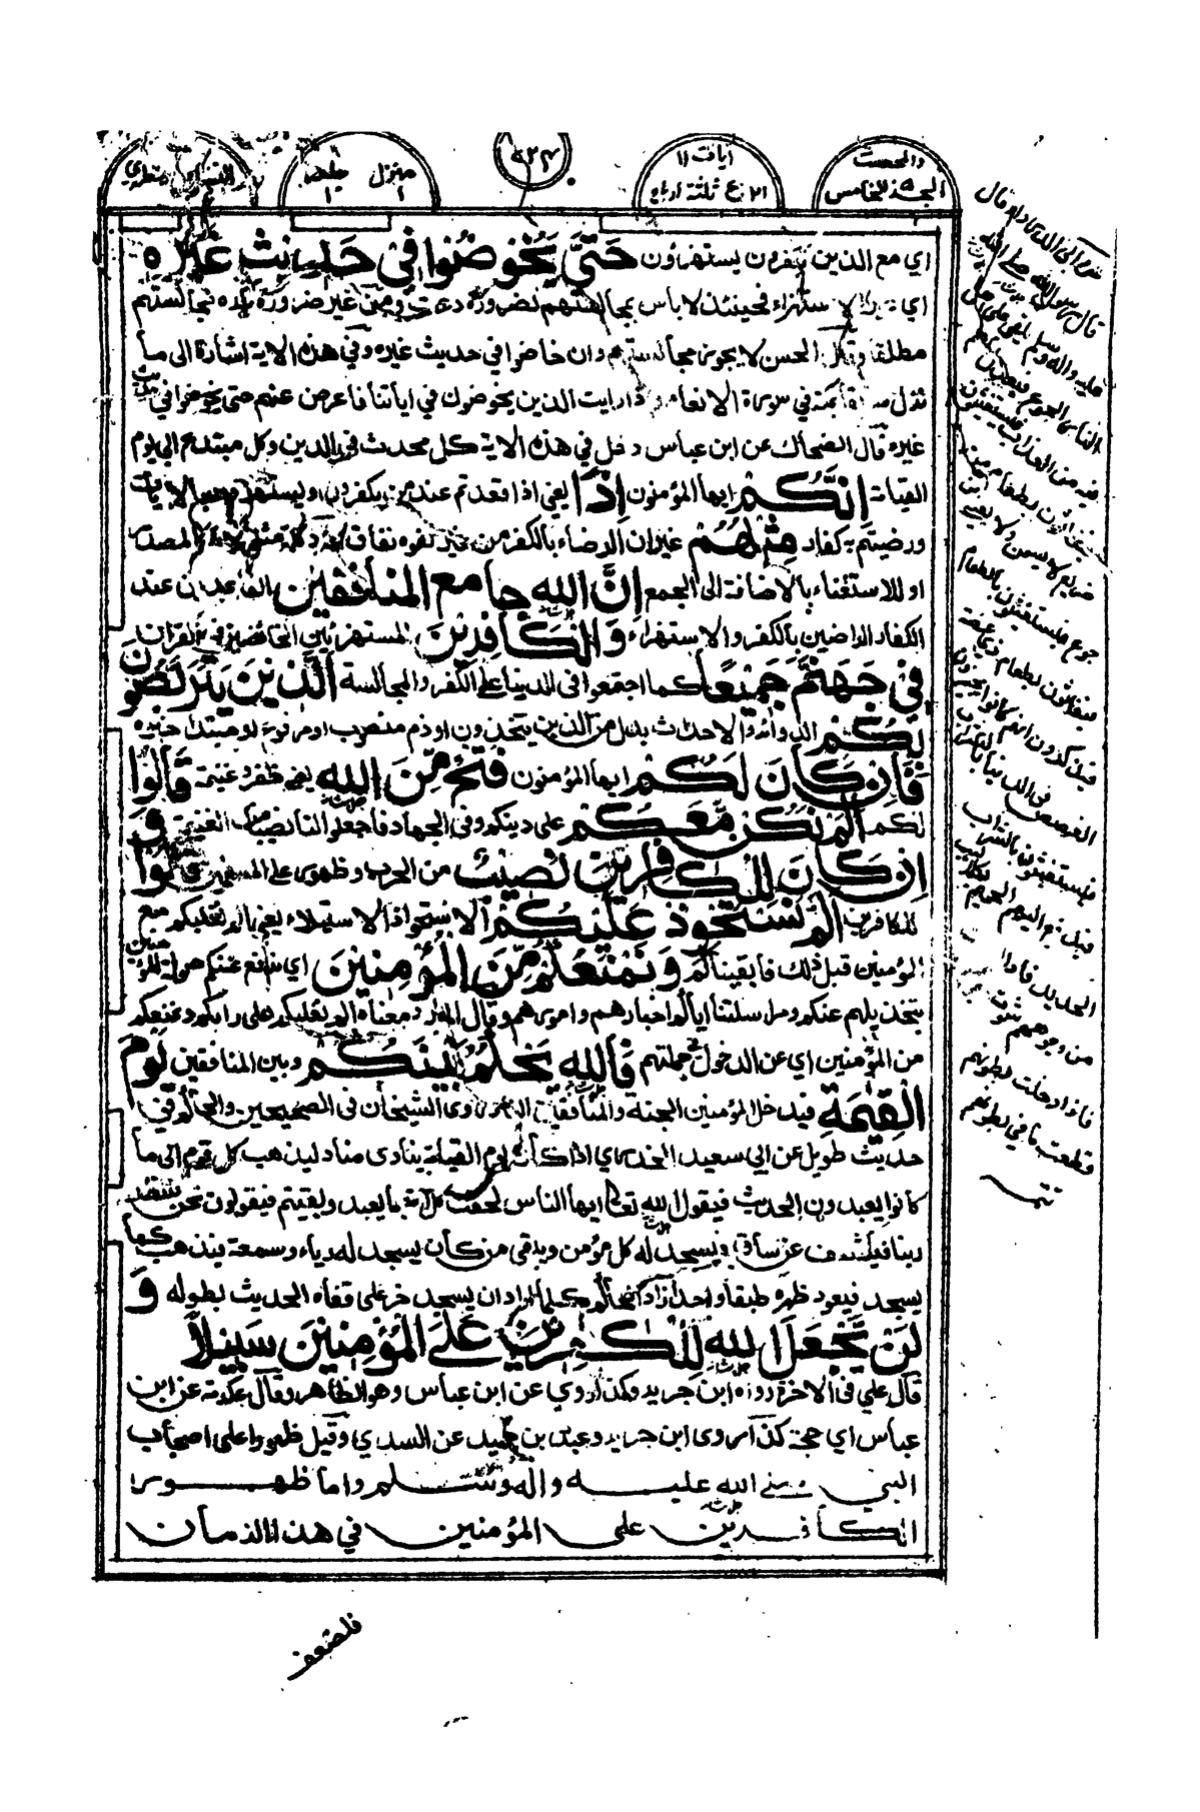 والمحصنت
الجزء الخامس
ايات ١١
ثلثة ارباع
٥٢٤
منزل ١
جلد ١
النساء
مظهري
اي مع الذين يكفرون يستهزؤن حَتّٰى يَخُوضُوا فِىْ حَدِيْثٍ غَيْرِهٖ
اي الاستهزاء فحينئذ لا باس بمجالستهم لضرورة دعت ومن غير ضرورة يكره مجالستهم
مطلقا وقال الحسن لا يجوز مجالستهم وان خاضوا في حديث غيره وفي هذه الاية اشارة الى ما
نزل بمكة في سورة الانعام واذا رايت الذين يخوضون في اياتنا فاعرض عنهم حتى يخوضوا في حديث
غيره قال الضحاك عن ابن عباس دخل في هذه الاية كل محدث في الدين وكل مبتدع الى يوم
القيامة اِنَّكُمْ ايها المؤمنون اِذًا يعني اذا قعدتم عند من يكفرون او يستهزء بالايات
ورضيتم به كفار مِثْلُهُمْ غير ان الرضاء بالكفر من غير تفوه نفاق
او للاستغناء بالاضافة الى الجمع اِنَّ اللهَ جَامِعُ الْمُنٰفِقِيْنَ القاعدين عند
الكفار الراضين بالكفر والاستهزاء وَالْكَافِرِيْنَ المستهزئين الخائضين في القران
فِىْ جَهَنَّمَ جَمِيْعًا كما اجتمعوا في الدنيا على الكفر والمجالسة الَّذِيْنَ يَتَرَبَّصُوْنَ
بِكُمْ الدوائر والاحداث بدل من الذين يتخذون او ذم منصوب او مرفوع او مبتدا خبره
فَاِنْ كَانَ لَكُمْ ايها المؤمنون فَتْحٌ مِّنَ اللهِ يعني ظفر وغنيمة قَالُوْا
لكم اَلَمْ نَكُنْ مَّعَكُمْ على دينكم وفي الجهاد فاجعلوا لنا نصيبا من الغنيمة وَ
اِنْ كَانَ لِلْكٰفِرِيْنَ نَصِيْبٌ من الحرب وظهور على المسلمين قَالُوْا
للكافرين اَلَمْ نَسْتَحْوِذْ عَلَيْكُمْ الاستحواذ الاستيلاء يعني الم نغلبكم مع
المؤمنين قبل ذلك فابقيناكم وَنَمْنَعْكُمْ مِّنَ الْمُؤْمِنِيْنَ اي ندافع عنكم صولة المؤمنين
بتخذيلهم عنكم ومراسلتنا اياكم اخبارهم وامورهم وقال المبرد معناه الم نغلبكم على رايكم ونمنعكم
من المؤمنين اي عن الدخول في جملتهم فَاللهُ يَحْكُمُ بَيْنَكُمْ وبين المنافقين يَوْمَ
الْقِيٰمَةِ فيدخل المؤمنين الجنة والمنافقين النار روى الشيخان في الصحيحين والحاكم في
حديث طويل عن ابي سعيد الخدري اذا كان يوم القيامة ينادى مناد ليذهب كل قوم الى ما
كانوا يعبدون الحديث فيقول الله تعالى ايها الناس لحقت كل امة بما يعبد وبقيتم فيقولون نحن ننتظر
ربنا فيكشف عن ساق ويسجد له كل مؤمن ويبقى من كان يسجد له رياء وسمعة فيذهب كيما
يسجد فيعود ظهره طبقا واحدا زاد الحاكم كلما اراد ان يسجد خر على قفاه الحديث بطوله وَ
لَنْ يَّجْعَلَ اللهُ لِلْكٰفِرِيْنَ عَلَى الْمُؤْمِنِيْنَ سَبِيْلًا
قال علي في الاخرة رواه ابن جرير وكذا روي عن ابن عباس وهو الظاهر وقال عكرمة عن ابن
عباس اي حجة كذا روى ابن جرير وعبد بن حميد عن السدي وقيل ظهورا على اصحاب
النبي صلى الله عليه واله وسلم واما ظهور
الكافرين على المؤمنين في هذا الزمان
فلضعف
قال رسول الله صلى الله
عليه واله وسلم يلقى على اهل
النار الجوع فيعدل
ما هم فيه من العذاب فيستغيثون
فيغاثون بطعام من
ضريع لا يسمن ولا يغني من
جوع فيستغيثون بالطعام
فيغاثون بطعام ذي غصة
فيذكرون انهم كانوا يجيزون
الغصص في الدنيا بالشراب
فيستغيثون بالشراب
فيدفع اليهم الحميم بكلاليب
الحديد فاذا
من وجوههم شوت
فاذا دخلت بطونهم
قطعت ما في بطونهم